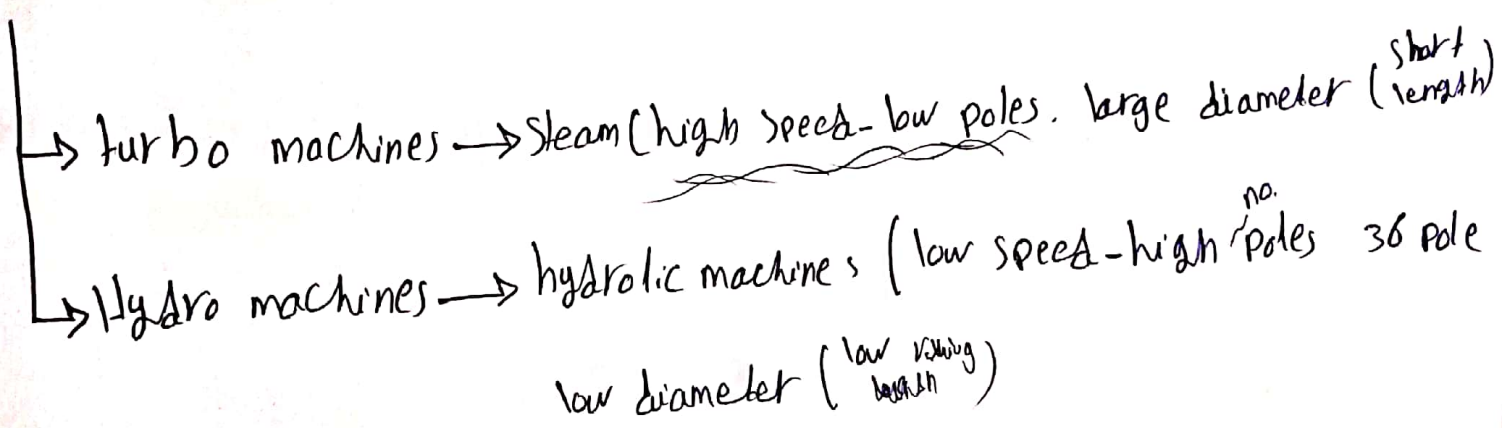 turbo machines → Steam (high speed - low poles. large diameter (short length)
Hydro machines → hydrolic machines (low speed - high no. poles 36 pole
low diameter (low